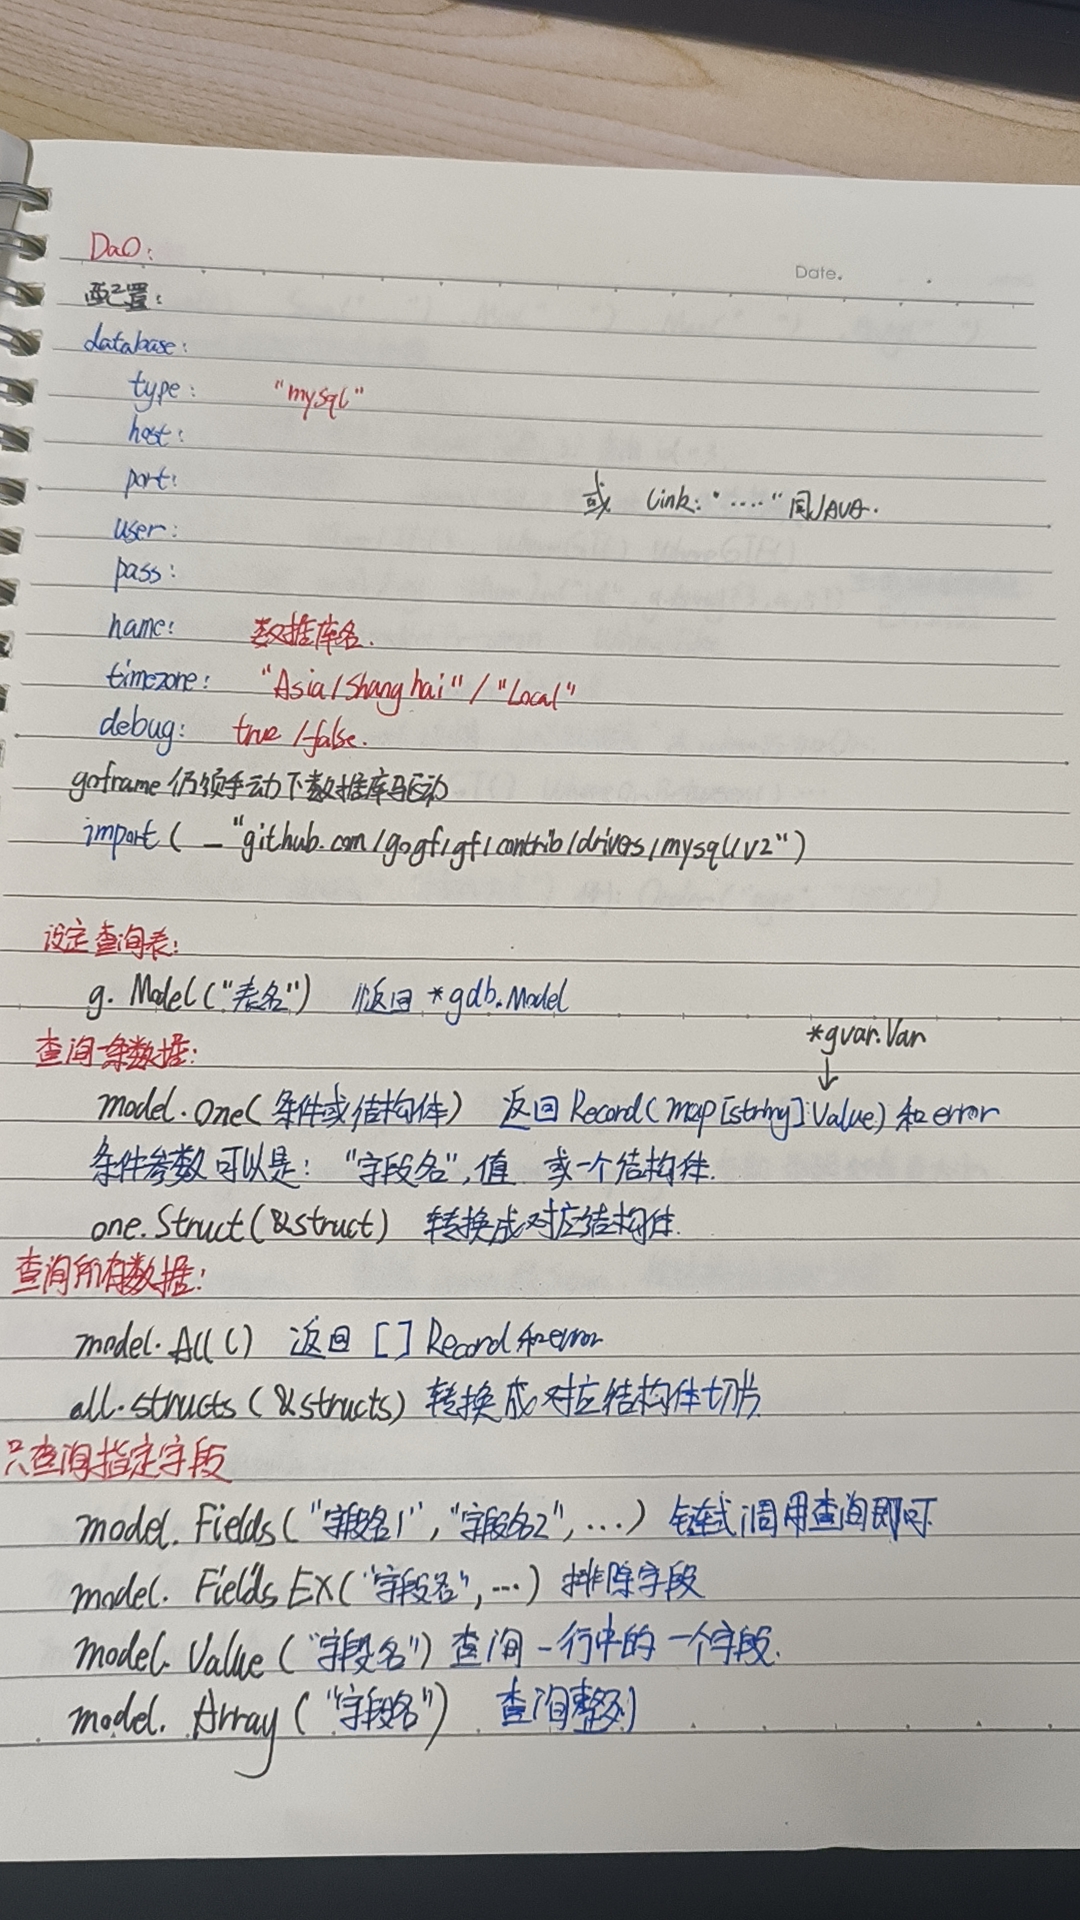 Dao:
Date.
配置:
database:
type: "mysql"
host:
port:
或 Link: "....." 同JAVA.
user:
pass:
name: 数据库名.
timezone: "Asia/Shanghai" / "Local"
debug: true / false.
goframe 仍须手动下数据库驱动
import ( _ "github.com/gogf/gf/contrib/drivers/mysql/v2")
设定查询表:
g. Model("表名") //返回 *gdb.Model
*gvar.Var
↓
查询一条数据:
model.One( 条件或结构体) 返回 Record(map[string]Value) 和 error
条件参数可以是: "字段名", 值 或一个结构体.
one.Struct(&struct) 转换成对应结构体.
查询所有数据:
model.All() 返回 [] Record 和 error
all.structs (&structs) 转换成对应结构体切片
只查询指定字段
model. Fields ("字段名1", "字段名2", ...) 链式调用查询即可.
model. Fields EX("字段名", ...) 排除字段
model. Value ("字段名") 查询一行中的一个字段.
model. Array ("字段名") 查询整列